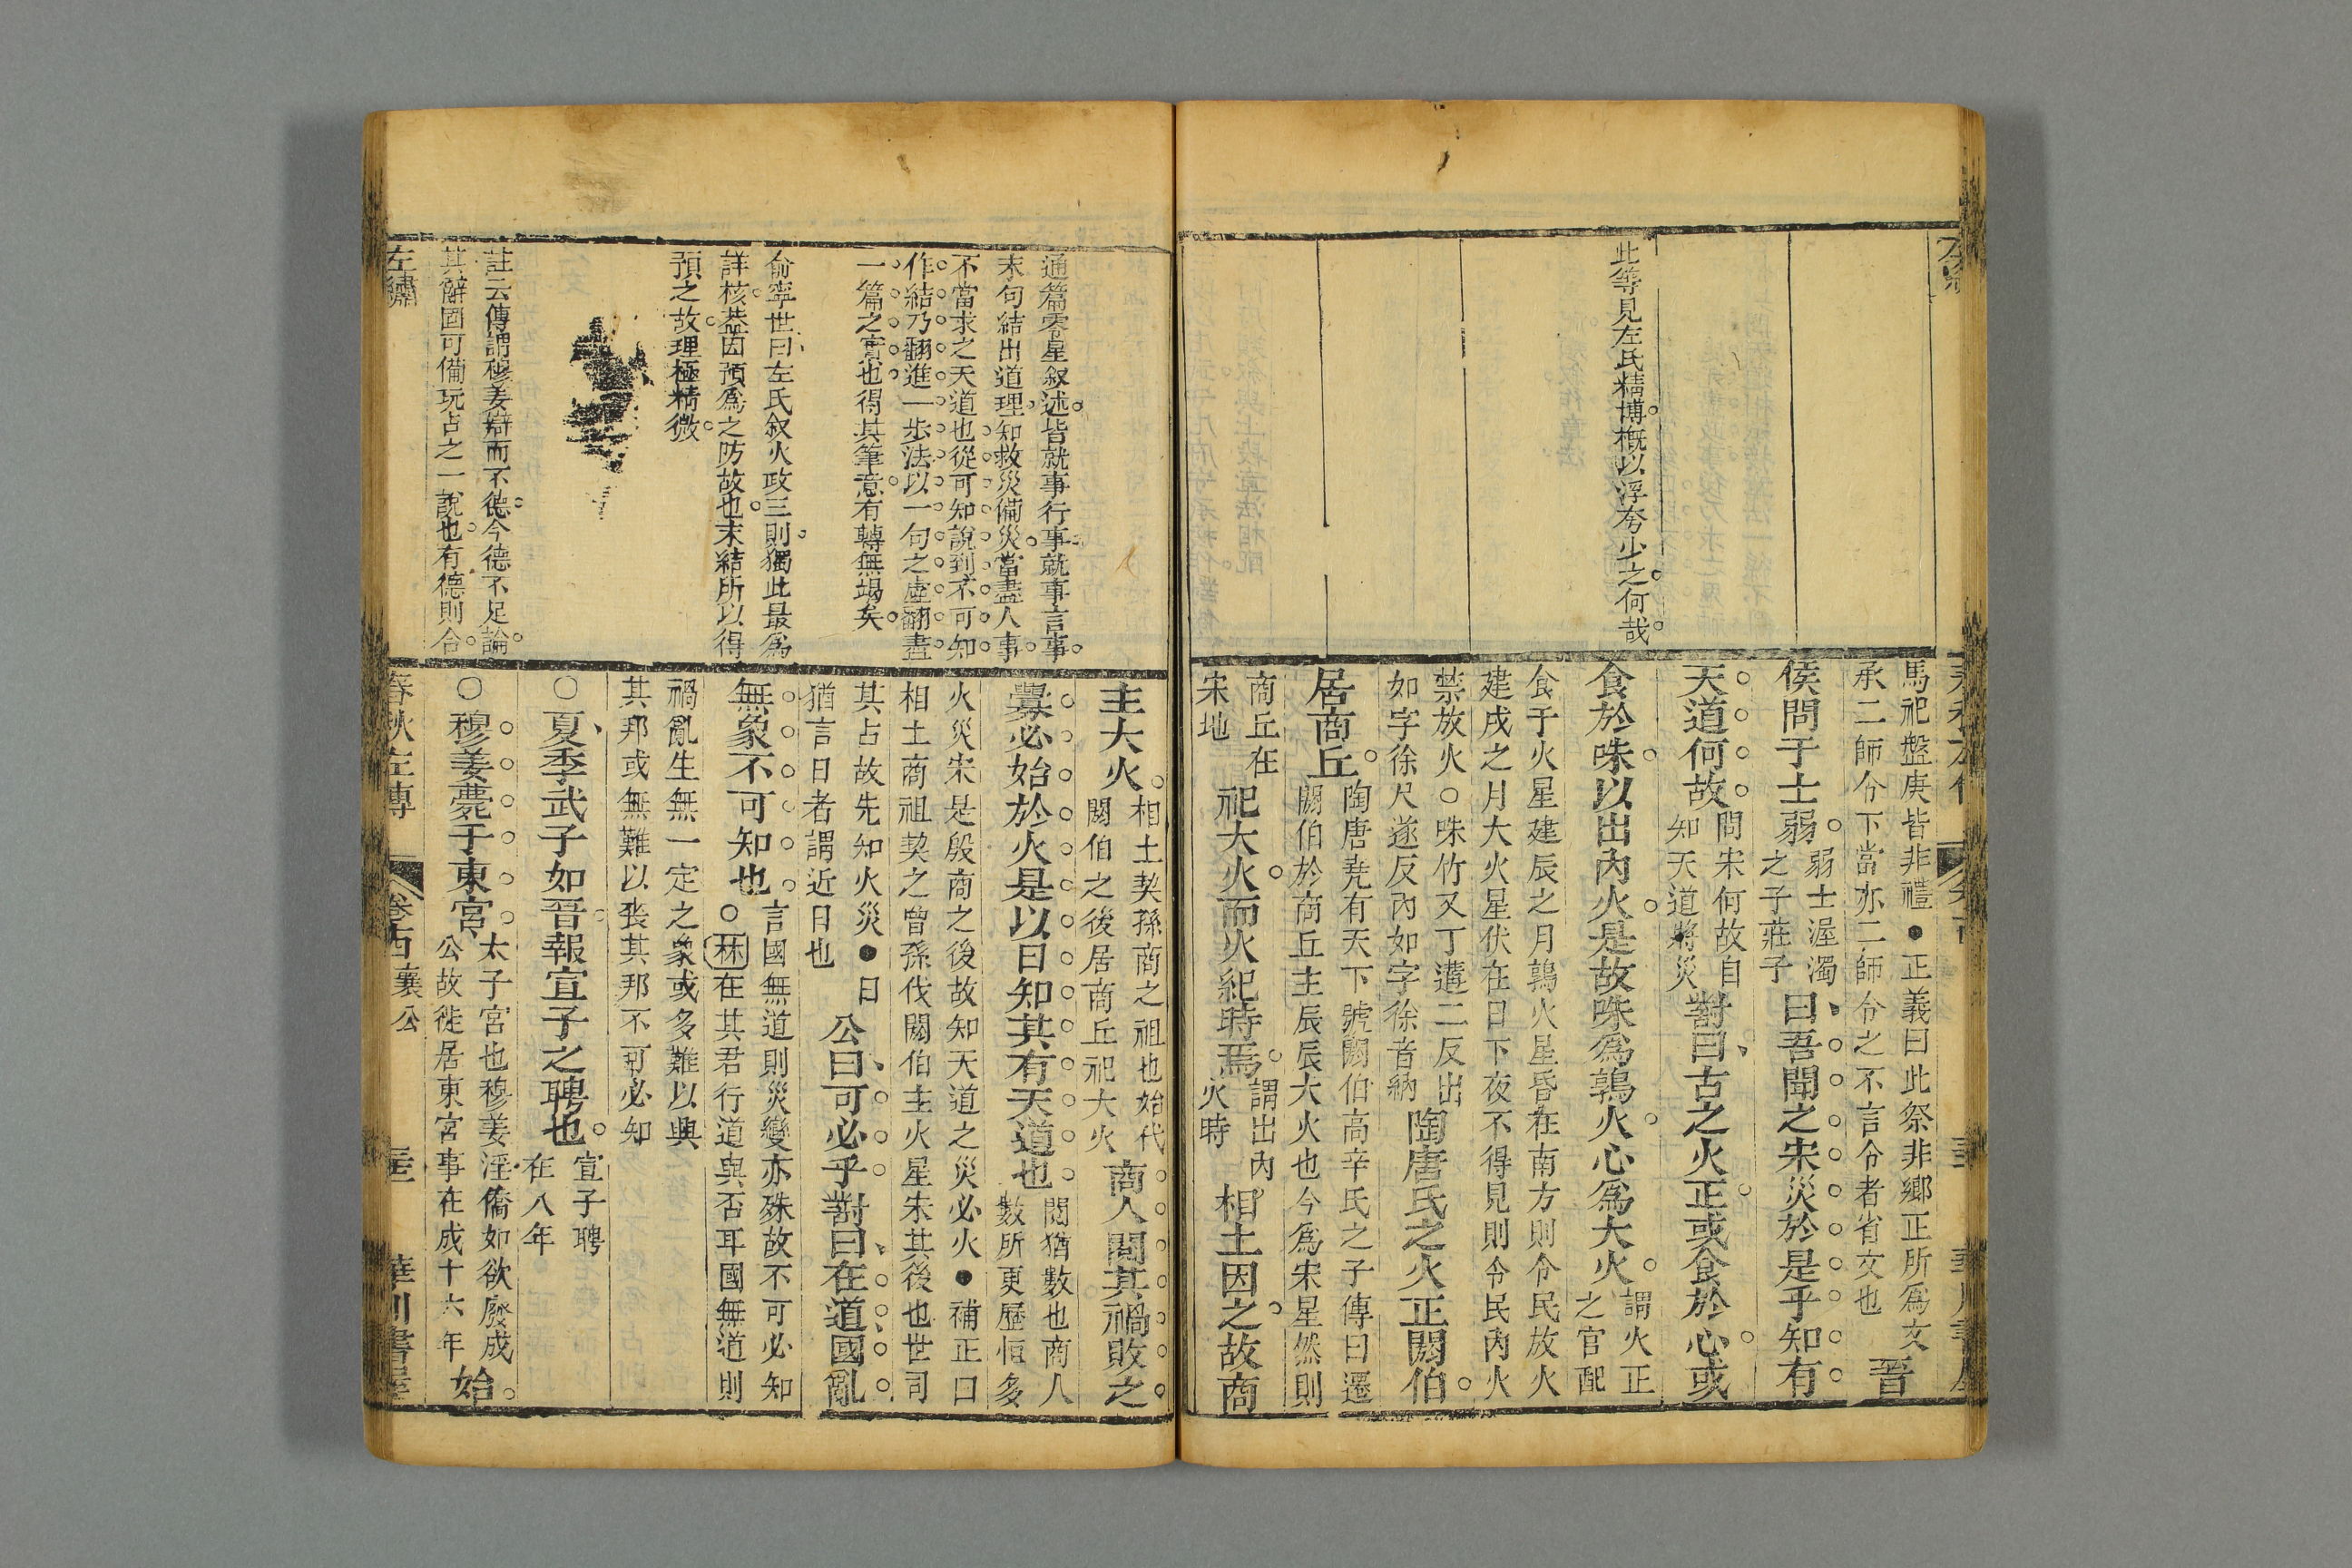 此等見左氏精博概以浮夸少之何哉
馬祀盤庚皆非禮●正義曰此祭非鄉正所爲文
承二師令下當亦二師令之不言令者省文也
晉
侯問于士弱
弱士渥濁
之子莊子
曰吾聞之宋災於是乎知有
天道何故
問宋何故自
知天道將災
對曰古之火正或食於心或
食於咮以出內火是故咮爲鶉火心爲大火
謂火正
之官配
食于火星建辰之月鶉火星昏在南方則令民放火
建戌之月大火星伏在日下夜不得見則令民內火
禁放火○咮竹又丁遘二反出
如字徐尺遂反內如字徐音納
陶唐氏之火正閼伯
居商丘
陶唐堯有天下號閼伯高辛氏之子傳曰遷
閼伯於商丘主辰辰大火也今爲宋星然則
商丘在
宋地
祀大火而火紀時焉
謂出內
火時
相土因之故商
通篇零星叙述皆就事行事就事言事
末句結出道理知救災備災當盡人事
不當求之天道也從可知說到不可知
作結乃翻進一步法以一句之虛翻盡
一篇之實也得其筆意有轉無竭矣
俞寧世曰左氏叙火政三則獨此最爲
詳核葢因預爲之防故也末結所以得
預之故理極精微
註云傳謂穆姜辯而不德今德不足論
其辭固可備玩占之一說也有德則合
左繡
主大火
相土契孫商之祖也始代
閼伯之後居商丘祀大火
商人閱其禍敗之
釁必始於火是以日知其有天道也
閱猶數也商人
數所更歷恒多
火災宋是殷商之後故知天道之災必火●補正曰
相土商祖契之曾孫伐閼伯主火星宋其後也世司
其占故先知火災●日
猶言日者謂近日也
公曰可必乎對曰在道國亂
無象不可知也
言國無道則災變亦殊故不可必知
○林在其君行道與否耳國無道則
禍亂生無一定之象或多難以興
其邦或無難以喪其邦不可必知
○夏季武子如晉報宣子之聘也
宣子聘
在八年
○穆姜薨于東宮
太子宮也穆姜淫僑如欲廢成
公故徙居東宮事在成十六年
始
春秋左傳
卷十四襄公
華川書屋